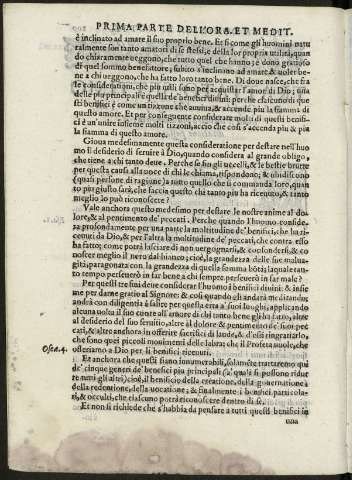 PRIMA PARTE DELL'ORA. ET MEDIT.
è inclinato ad amare il suo proprio bene. Et sì come gli huomini natu
ralmente son tanto amatori di se stessi, & della lor propria utilità, quan
do chiaramente ueggono, che tutto quel che hanno, è dono gratuito
di quel sommo benefattore; subito s'inclinano ad amare & uoler be-
ne a chi ueggono, che ha fatto loro tanto bene. Di doue nasce, che fra
le considerationi, che più utili sono per acquistar l'amor di Dio; una
delle più principali è quella de' beneficii diuini: perche ciascuno di que
sti beneficii è come un tizzone che auuiua, & accende più la fiamma di
questo amore. Et per conseguente considerare molti di questi benefi-
cii è un'unire insieme molti tizzoni, acciò che così s'accenda più & più
la fiamma di questo amore.
Gioua medesimamente questa consideratione per destare nell'huo
mo il desiderio di seruire à Dio, quando considera al grande obligo,
che tiene a chi tanto deue. Perche se fin gli uccelli, & le bestie brutte
per questa causa alla uoce di chi le chiama, rispondono; & ubidiscono
(quasi persone di ragione) a tutto quello che si comanda loro, quan
to più giusto sarà, che faccia questo chi tanto più ha riceuuto, & tanto
meglio lo può riconoscere?
Vale anchora questo medesimo per destare le nostre anime al do-
lore, & al pentimento de' peccati. Perche quando l'huomo conside-
ra profondamente per una parte la moltitudine de' beneficii, che ha ri-
ceuuti da Dio, & per l'altra la moltitudine de' peccati, che contra esso
ha fatto; come potrà lasciare di non uergognarsi, & confondersi, & co
noscer meglio il nero dal bianco; cioè, la grandezza delle sue malua-
gità, paragonata con la grandezza di quella somma bontà; la quale tan-
to tempo perseuerò in far bene a chi sempre perseuerò in far male?
Per questi tre fini deue considerar l'huomo i beneficii diuini: & insie
me per darne gratie al Signore: & così quando gli andarà meditando;
andrà con diligentia à salire per questa erta à suoi luoghi, applicando
alcuna uolta il suo cuore all'amore di chi tanto bene gli ha fatto, altre
al desiderio del suo seruitio, altre al dolore & pentimento de' suoi pec
cati, & altre anchora in offerire sacrificii di laude, & d'essi ringratiarlo,
che sono quei piccoli mouimenti delle labra; che il Profeta uuole, che
Osea. 4. offeriamo a Dio per li beneficii riceuuti.
Et anchora che questi siano innumerabili, solamente trattaremo qui
de' cinque generi de' beneficii più principali (a' quali si possono ridur
re tutti gli altri) cioè, il beneficio della creatione, della gouernatione,
della redentione, della uocatione; & finalmente i beneficii particola-
ri, & occulti, che ciascuno potrà riconoscere dentro di se.
Et non si richiede che s'habbia da pensare a tutti questi beneficii in
una